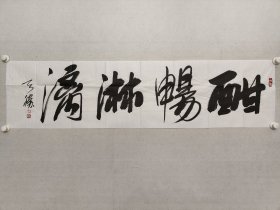 酣暢淋漓